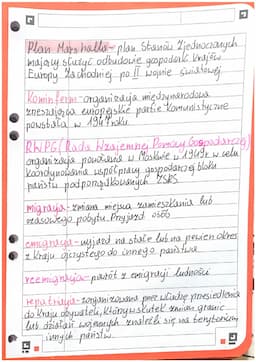 Plan Marshalla - plan Stanów Zjednoczonych
mający służyć odbudowie gospodarki krajów
Europy Zachodniej po II wojnie światowej.
Kominform - organizacja międzynarodowa
zrzeszająca europejskie partie komunistyczne
powstała w 1947 roku.
RWPG (Rada Wzajemnej Pomocy Gospodarczej)
organizacja powstania w Moskwie w 1949r w celu
koordynowania współpracy gospodarczej bloku
państw podporządkowanych ZSRS.
migracja - zmiana miejsca zamieszkania lub
czasowego pobytu. Przyjazd osób
emigracja - wyjazd na stałe lub na pewien okres
z kraju ojczystego do innego państwa.
reemigracja - powrót z emigracji ludności
repatriacja - zorganizowane przez władzę przesiedlenia
do kraju obywateli, którzy wskutek zmian granic
lub działań wojennych znaleźli się na terytorium
innych państw.